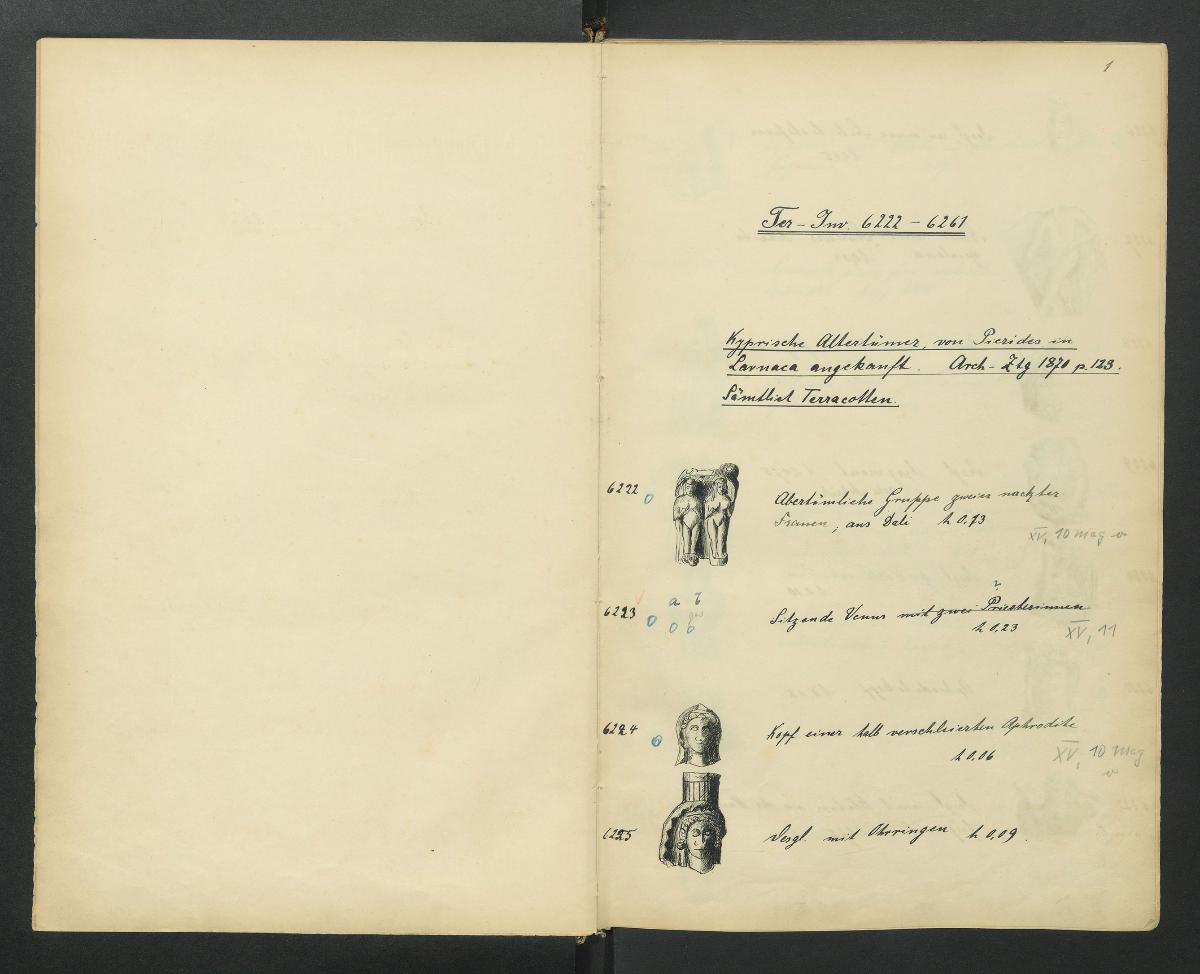 1
Ter-Inv. 6222 - 6261
Kyprische Altertümer, von Pierides in
Larnaca angekauft. Arch-Ztg 1870 p. 123.
Sämtlich Terracotten.
6222 0
Altertümliche Gruppe zweier nackter
Frauen, aus Dali h 0,13
XV, 10 Mag v
6223 0 a b
0 0
?
Sitzende Venus mit zwei Priesterinnen
h 0,23
XV, 11
6224 0
Kopf einer halb verschleierten Aphrodite
h 0,06
XV, 10 Mag
v
6225
Desgl. mit Ohrringen h 0,09.